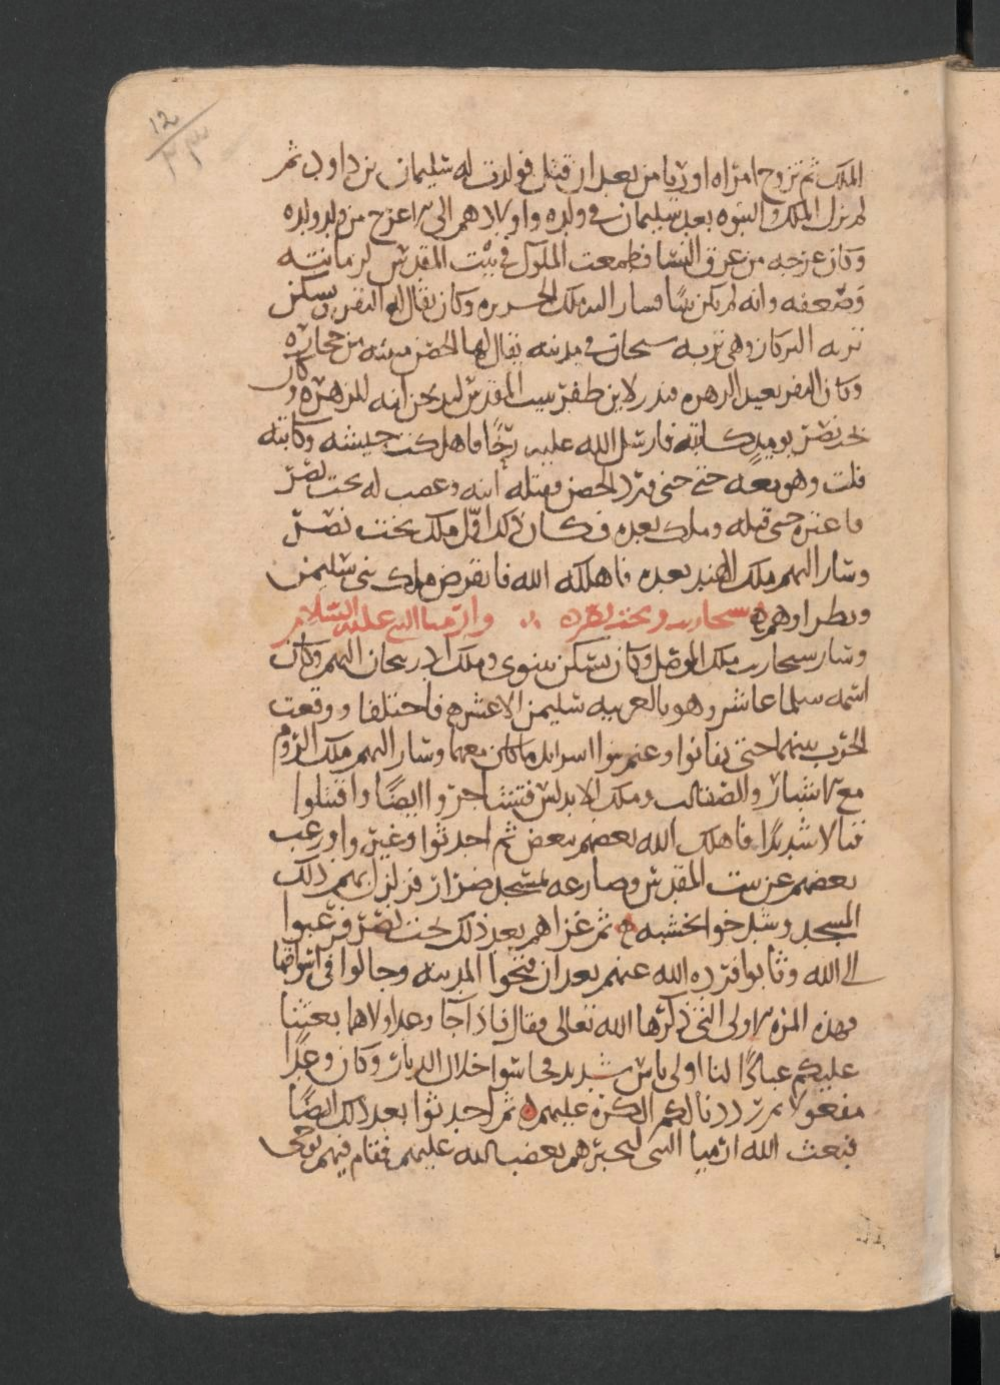 12
٢٣
الملك ثم تزوج امراه اوريا من بعد ان قتل فولدت له سليمان بن داود ثم
لم يزل الملك والنبوه بعد سليمان في ولده واولادهم الى الاعرج من ولد ولده
وكان عرجه من عرق النسا فطمعت الملوك في بيت المقدس لزمانته
وضعفه وانه لم يكن نبيا فسار اليه ملك الجزيره وكان يقال له النفر ويسكن
بريه وهي بريه سنجار في مدينه يقال لها الحضر مبنيه من حجاره
وكان النفر يعبد الزهره فنذر لاين ظفر ببيت المقدس ليذبحن ابنه للزهره وكان
بخت نصر يوميذ كاتبه فارسل الله عليه ريحا فاهلكت جيشه وكاتبه
فلت وهو معه حتى ورد الحضر فقتله ابنه وغضب له بخت نصر
فاغتره حتى قتله وملك بعده فكان ذلك اول ملك بخت نصر
وسار اليهم ملك الهند بعده فاهلكه الله فانقرض ملك بني سليمن
سنحاريب وبخت نصره وارميا النبي عليه السلام
وسار سنحاريب ملك الموصل وكان يسكن نينوى وملك اذربيجان اليهم وكان
اسمه سلماعاشر وهو بالعربيه سليمن الاعشر فاختلفا ووقعت
الحرب بينهما حتى تفانوا وغنم بنوا اسرايل ما كان معهما وسار اليهم ملك الروم
مع اشبار والصقالب وملك الاندلس فتشاجروا ايضا واقتتلوا
قتالا شديدا فاهلك الله بعضهم ببعض ثم احدثوا وغيروا ورغب
بعضهم عن بيت المقدس وصارعه بمسجد ضرار فزلزل بهم ذلك
المسجد وشدخوا بخشبه ثم غزاهم بعد ذلك بخت نصر فرغبوا
الى الله وتابوا فرده الله عنهم بعد ان فتحوا المدينه وجالوا في اسواقها
فهذه المره الاولى التي ذكرها الله تعالى فقال فاذا جآ وعد اولاهما بعثنا
عليكم عبادا لنا اولى باس شديد فجاسوا خلال الديار وكان وعدا
مفعولا ثم رددنا لكم الكره عليهم ثم احدثوا بعد ذلك ايضا
فبعث الله ارميا النبي ليخبرهم بغضب الله عليهم فقام فيهم بوحى